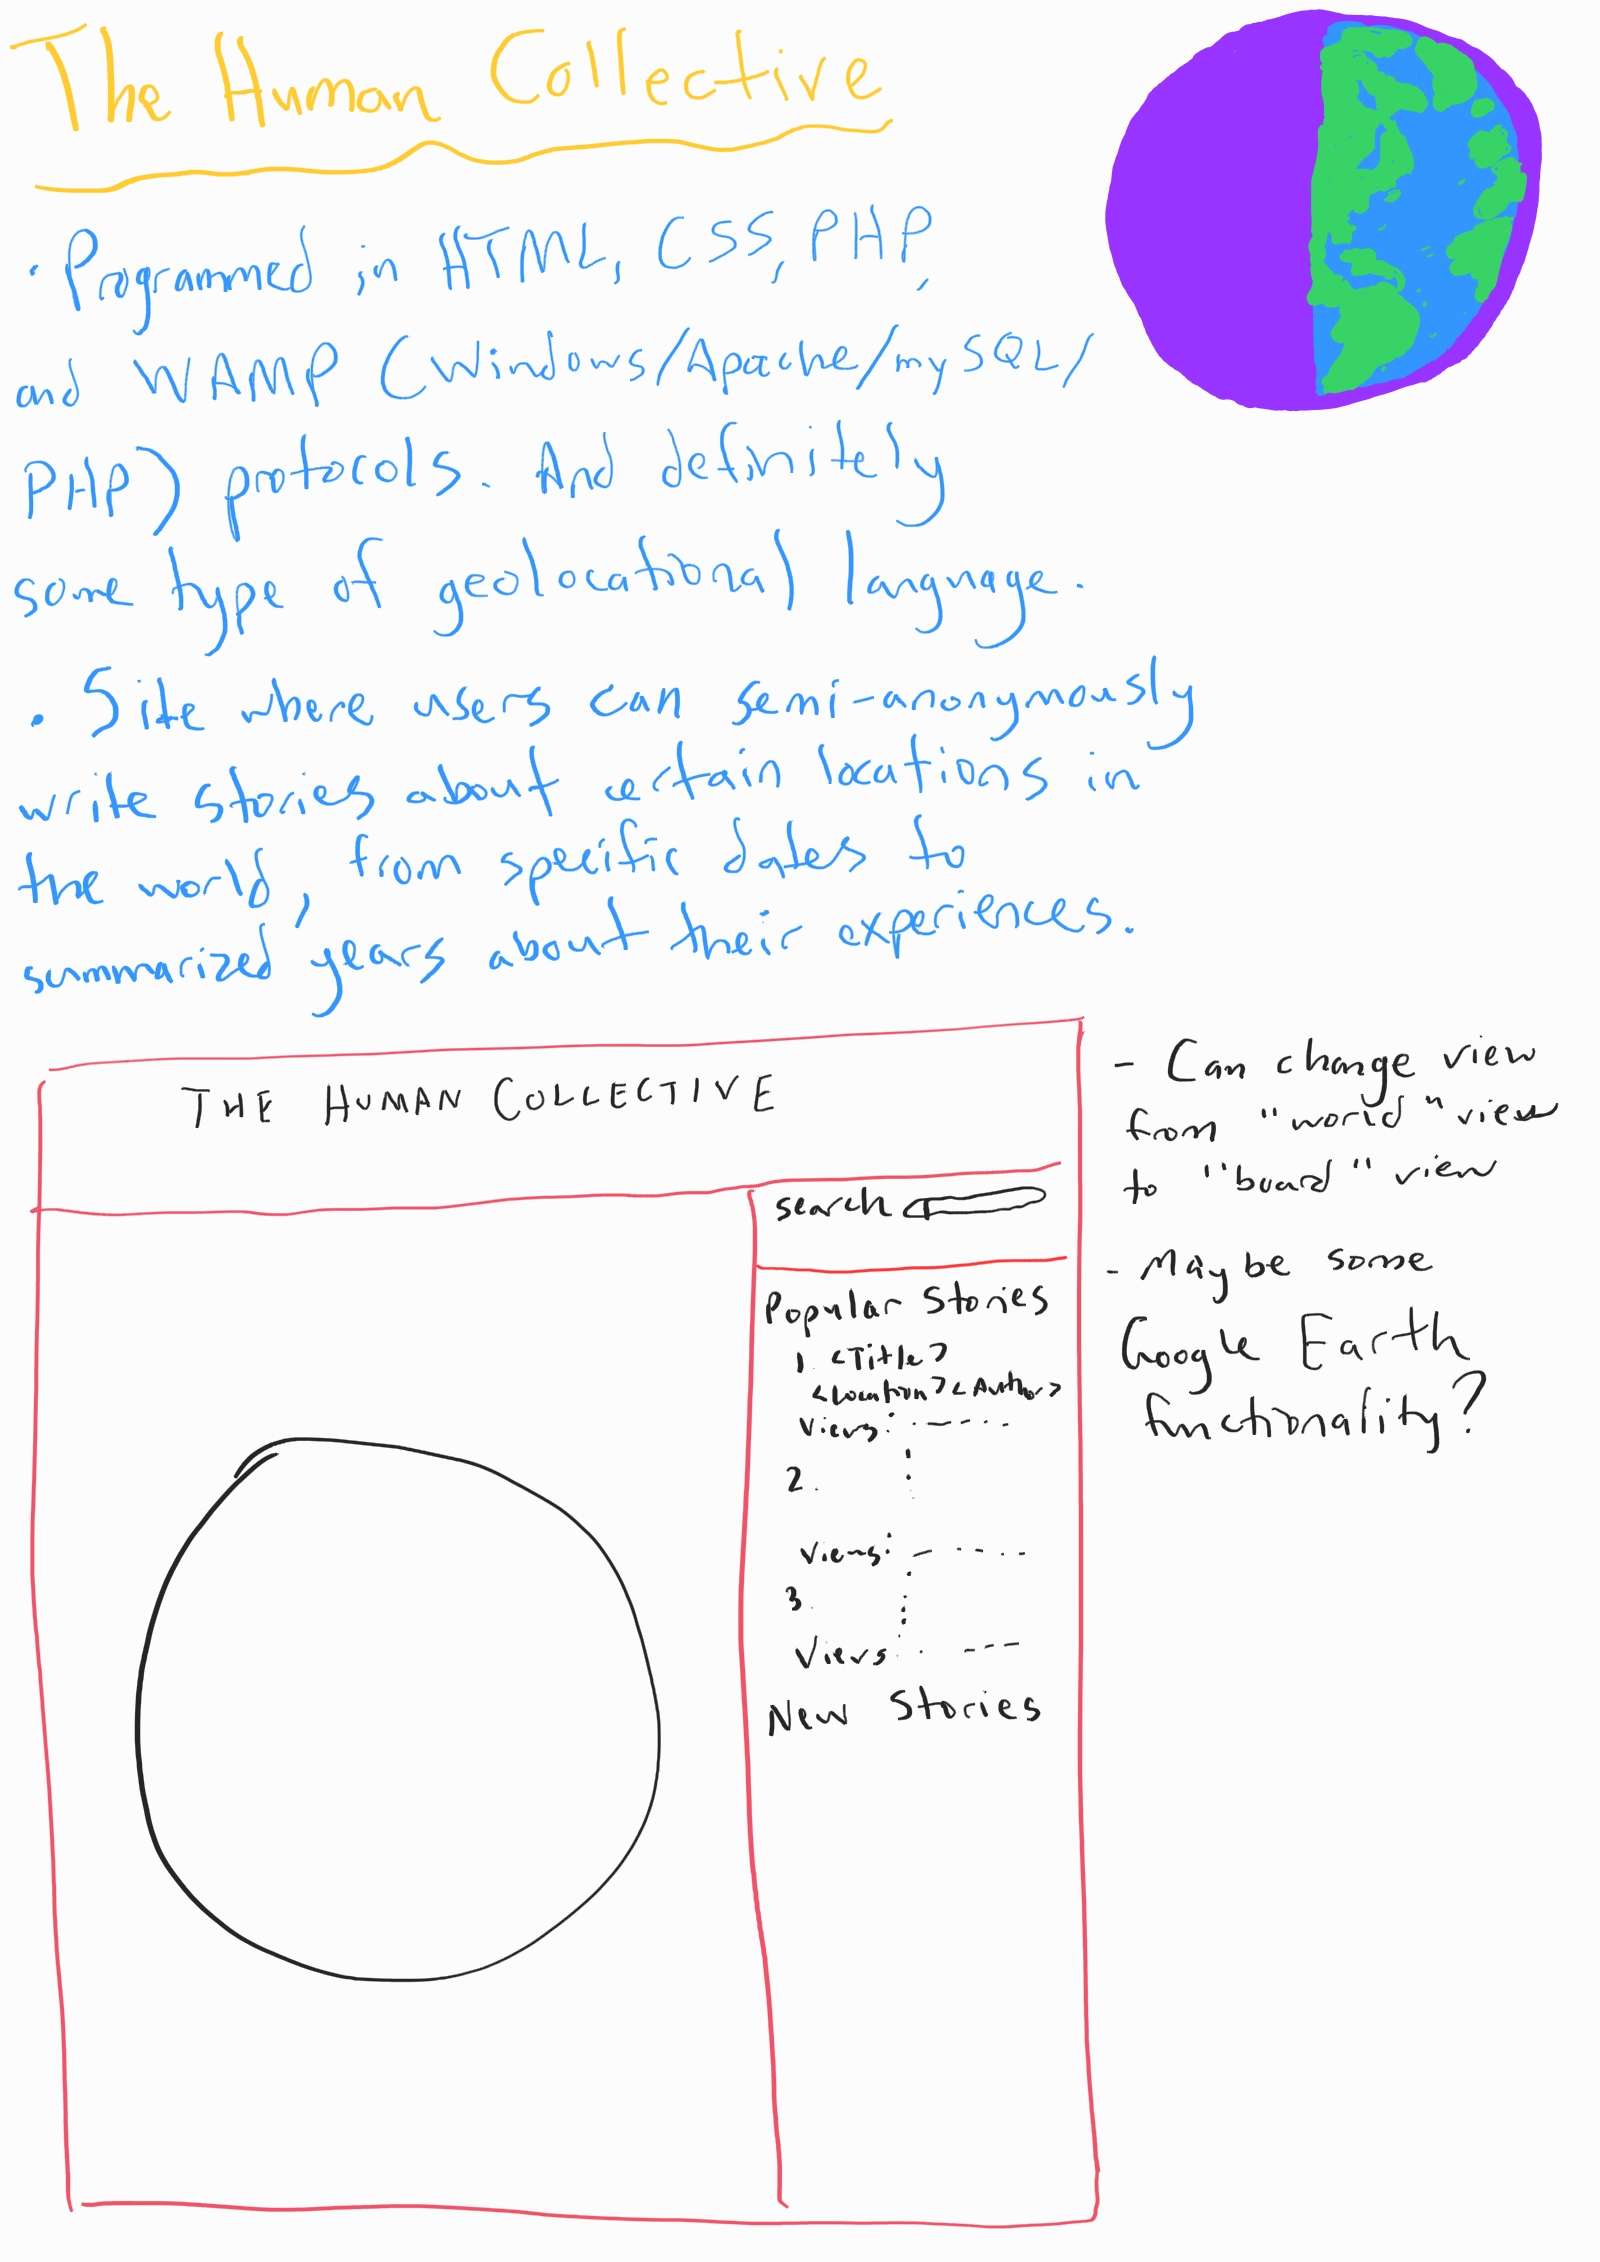 The Human Collective
· Programmed in HTML, CSS, PHP,
and WAMP (Windows/Apache/mySQL/
PHP) protocols. And definitely
some type of geolocational language.
· Site where users can semi-anonymously
write stories about certain locations in
the world, from specific dates to
summarized years about their experiences.
THE HUMAN COLLECTIVE
search
Popular Stories
1. <Title>
<Location> <Author>
Views:
2.
Views:
3.
Views
New Stories
- Can change view
from "world" view
to "board" view
- Maybe some
Google Earth
functionality?